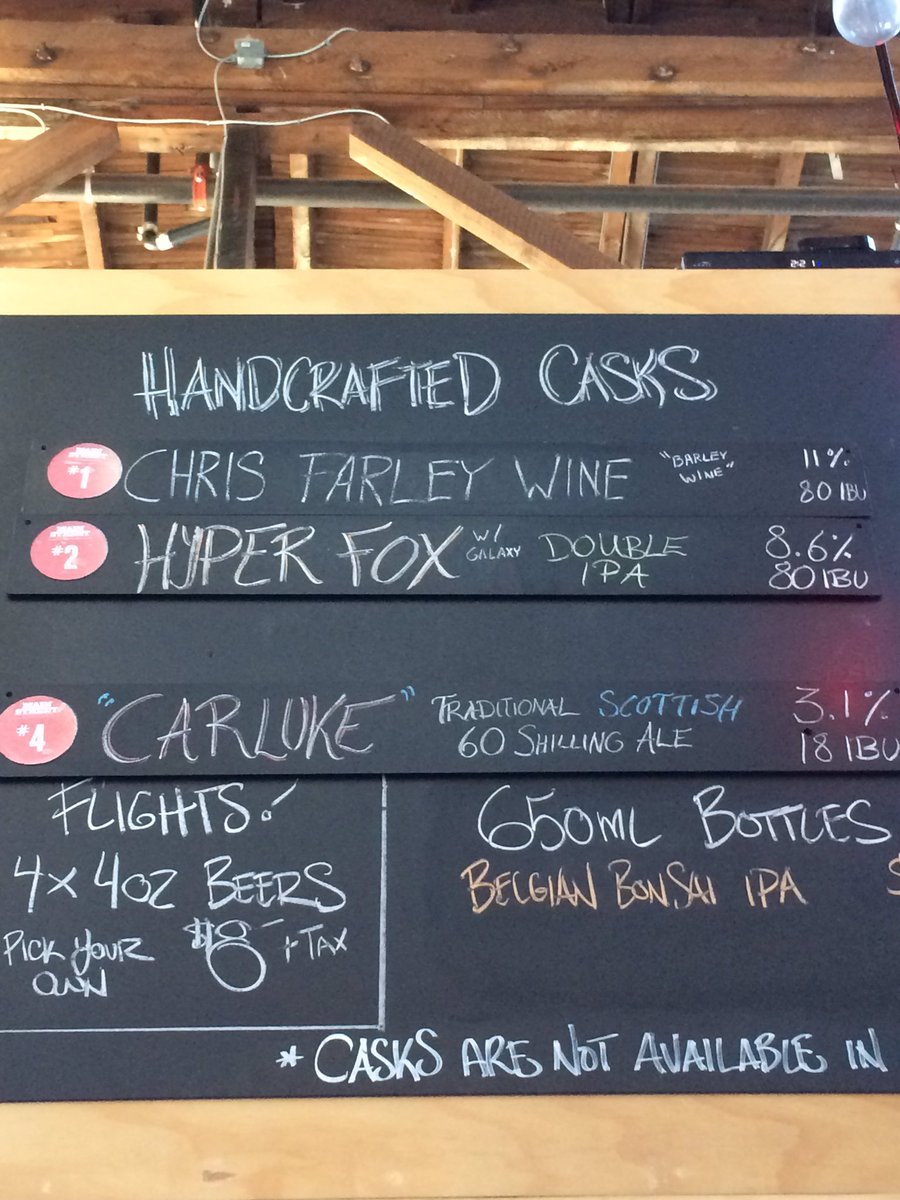 HANDCRAFTED CASKS
MAIN STREET #1 CHRIS FARLEY WINE "BARLEY WINE" 11% 80 IBU
MAIN STREET #2 HYPER FOX W/ GALAXY DOUBLE IPA 8.6% 80 IBU
MAIN STREET #4 "CARLUKE" TRADITIONAL SCOTTISH 60 SHILLING ALE 3.1% 18 IBU
FLIGHTS!
4 x 4OZ BEERS
PICK YOUR OWN $8 + TAX
650ML BOTTLES
BELGIAN BONSAI IPA $
* CASKS ARE NOT AVAILABLE IN